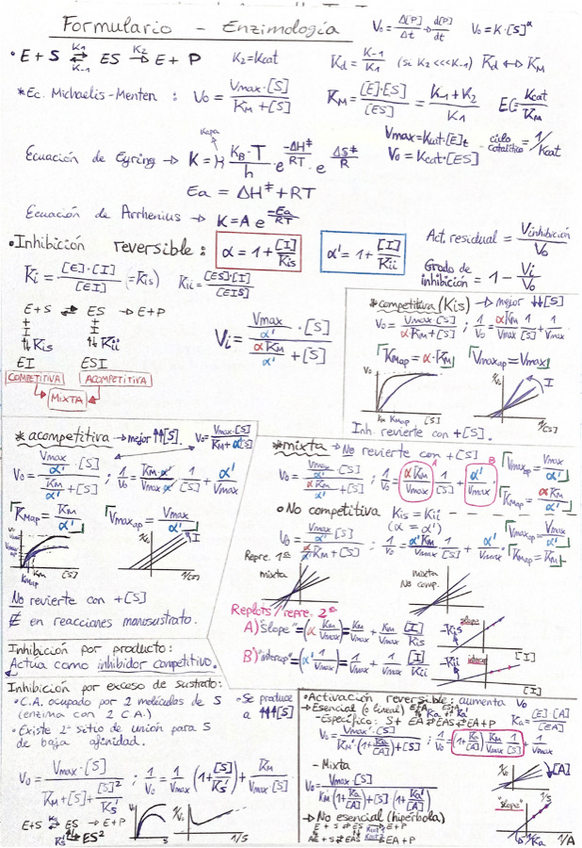 Formulario - Enzimología
V₀ = Δ[P]/Δt → d[P]/dt   V₀ = K·[S]^α
• E + S ⇄ ES → E + P   K₁ K₋₁ K₂   K₂ = Kcat   Kd = K₋₁/K₁ (si K₂ <<< K₋₁) Kd ↔ KM
* Ec. Michaelis-Menten : V₀ = Vmax·[S]/(KM + [S])   KM = [E]·[S]/[ES] = (K₋₁ + K₂)/K₁   EC = Kcat/KM
Vmax = Kcat·[E]t   ciclo catalítico = 1/Kcat
V₀ = Kcat·[ES]
Kapa
Ecuación de Eyring → K = H (KB·T/h)·e^(-ΔH‡/RT)·e^(ΔS‡/R)
Ea = ΔH‡ + RT
Ecuación de Arrhenius → K = A e^(-Ea/RT)
• Inhibición reversible : α = 1 + [I]/Kis   α' = 1 + [I]/Kii
Act. residual = Vinhibición/V₀
Grado de inhibición = 1 - Vi/V₀
Ki = [E]·[I]/[EI] (=Kis)   Kii = [ES]·[I]/[EIS]
E + S ⇄ ES → E + P
+ +
I I
⇅ Kis ⇅ Kii
EI ESI
COMPETITIVA ACOMPETITIVA
MIXTA
Vi = (Vmax/α'·[S])/(αKM/α' + [S])
* competitiva (Kis) → mejor ↓↓[S]
V₀ = Vmax [S]/(αKM + [S]) ; 1/V₀ = αKM/Vmax 1/[S] + 1/Vmax
KMap = α·KM   Vmaxap = Vmax
V₀ Km Kmap [S]   1/V₀ I 1/[S]
Inh. revierte con +[S].
* acompetitiva → mejor ↑↑[S]   V₀ = Vmax·[S]/(KM + α'[S])
V₀ = (Vmax/α' [S])/(KM/α' + [S]) ; 1/V₀ = KM·α'/(Vmax·α') 1/[S] + α'/Vmax
KMap = KM/α'   Vmaxap = Vmax/α'
Km Kmap [S]   1/V₀ I 1/[S]
No revierte con +[S]
∉ en reacciones monosustrato.
* mixta → No revierte con +[S]
V₀ = (Vmax/α' [S])/(αKM/α' + [S]) ; 1/V₀ = αKM/Vmax 1/[S] + α'/Vmax   A B
Vmaxap = Vmax/α'
KMap = αKM/α'
○ No competitiva Kis = Kii
(α = α')
V₀ = (Vmax/α' [S])/(α/α' KM + [S]) ; 1/V₀ = α'KM/Vmax 1/[S] + α'/Vmax
Vmaxap = Vmax/α'
KMap = KM
Repre. 1ª
mixta
mixta
No comp.
Replots / repre. 2ª
A) "slope" = (α KM/Vmax) = KM/Vmax + KM/Vmax [I]/Kis
-Kis slope [I]
B) "intercep" = (α' 1/Vmax) = 1/Vmax + 1/Vmax [I]/Kii
-Kii interc [I]
Inhibición por producto:
Actúa como inhibidor competitivo.
Inhibición por exceso de sustrato:
• C.A. ocupado por 2 moléculas de S
(enzima con 2 C.A.)
• Existe 2º sitio de unión para S
de baja afinidad.
• Se produce
a ↑↑↑[S]
V₀ = Vmax·[S]/(KM + [S] + [S]²/Ks') ; 1/V₀ = 1/Vmax (1 + [S]/Ks') + KM/(Vmax [S])
E + S ⇄ ES → E + P
Ks' ⇅ ES²
V₀ S   1/V₀ 1/S
• Activación reversible: aumenta V₀
→ Esencial (o lineal)
Ka = [E]·[A]/[EA]
- Específico: S + EA ⇄ EAS → EA + P
V₀ = Vmax·[S]/(KM·(1 + Ka/[A]) + [S]) ; 1/V₀ = (1 + Ka/[A]) KM/Vmax 1/[S] + 1/Vmax
- Mixta
V₀ = Vmax·[S]/(KM (1 + Ka/[A]) + [S]·(1 + Ka'/[A]))
1/V₀ ↓[A] 1/S
→ No esencial (hipérbola)
E + S ⇄ ES → E + P
A E + S ⇄ EAS → EA + P
"slope"
-1/Ka 1/A